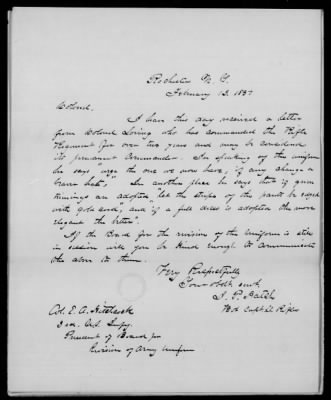 Rochester N. Y.
February 13. 1857
Colonel.
I have this day received a letter
from Colonel Loring who has commanded the Rifle
Regiment for over two years and may be considered
its permanent Commander. In speaking of the uniform
he says "urge the one we now have, if any change a
hat". In another place he says that if green
trimings are adopted, let the stripe of the pants be edged
with gold cord", and "if a full dress is adopted the more
elegant the better".
If the Board for the revision of the Uniform is still
in session will you be kind enough to communicate
the above to them.
Very Respectfully
Your obdt servt
Bvt Capt
Col. E. A. Hitchcock
2nd Inf'y.
President of Board for
Revision of Army Uniform